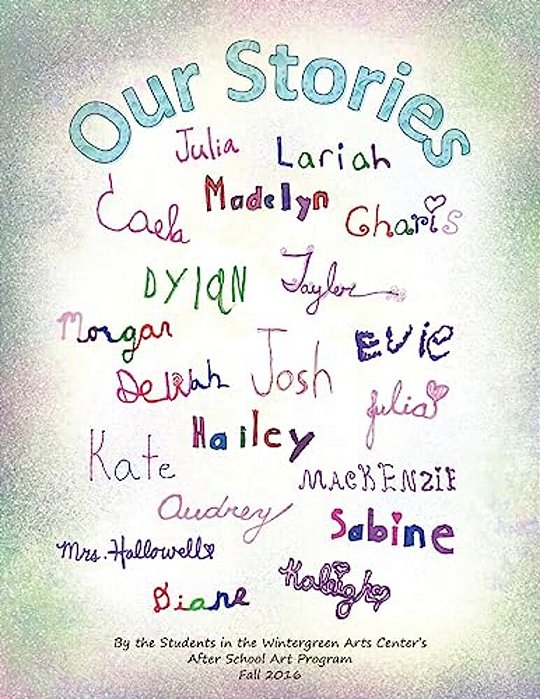 Our Stories
Julia
Lariah
Madelyn
Caela
Charis
DYlAN
Taylor
Morgan
EViE
Josh
DeliLah
Julia
Hailey
Kate
MACKENZiE
Audrey
Sabine
Mrs. Hallowell
Kaleigh
Diane
By the Students in the Wintergreen Arts Center's
After School Art Program
Fall 2016